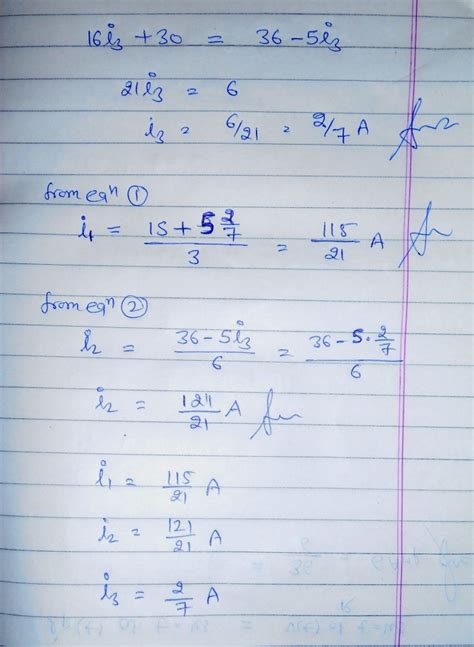 16i₃ + 30 = 36 - 5i₃
21i₃ = 6
i₃ = 6/21 = 2/7 A Ans
from eqⁿ ①
i₁ = (15 + 5 2/7)/3 = 115/21 A Ans
from eqⁿ ②
i₂ = (36 - 5i₃)/6 = (36 - 5·2/7)/6
i₂ = 121/21 A Ans
i₁ = 115/21 A
i₂ = 121/21 A
i₃ = 2/7 A